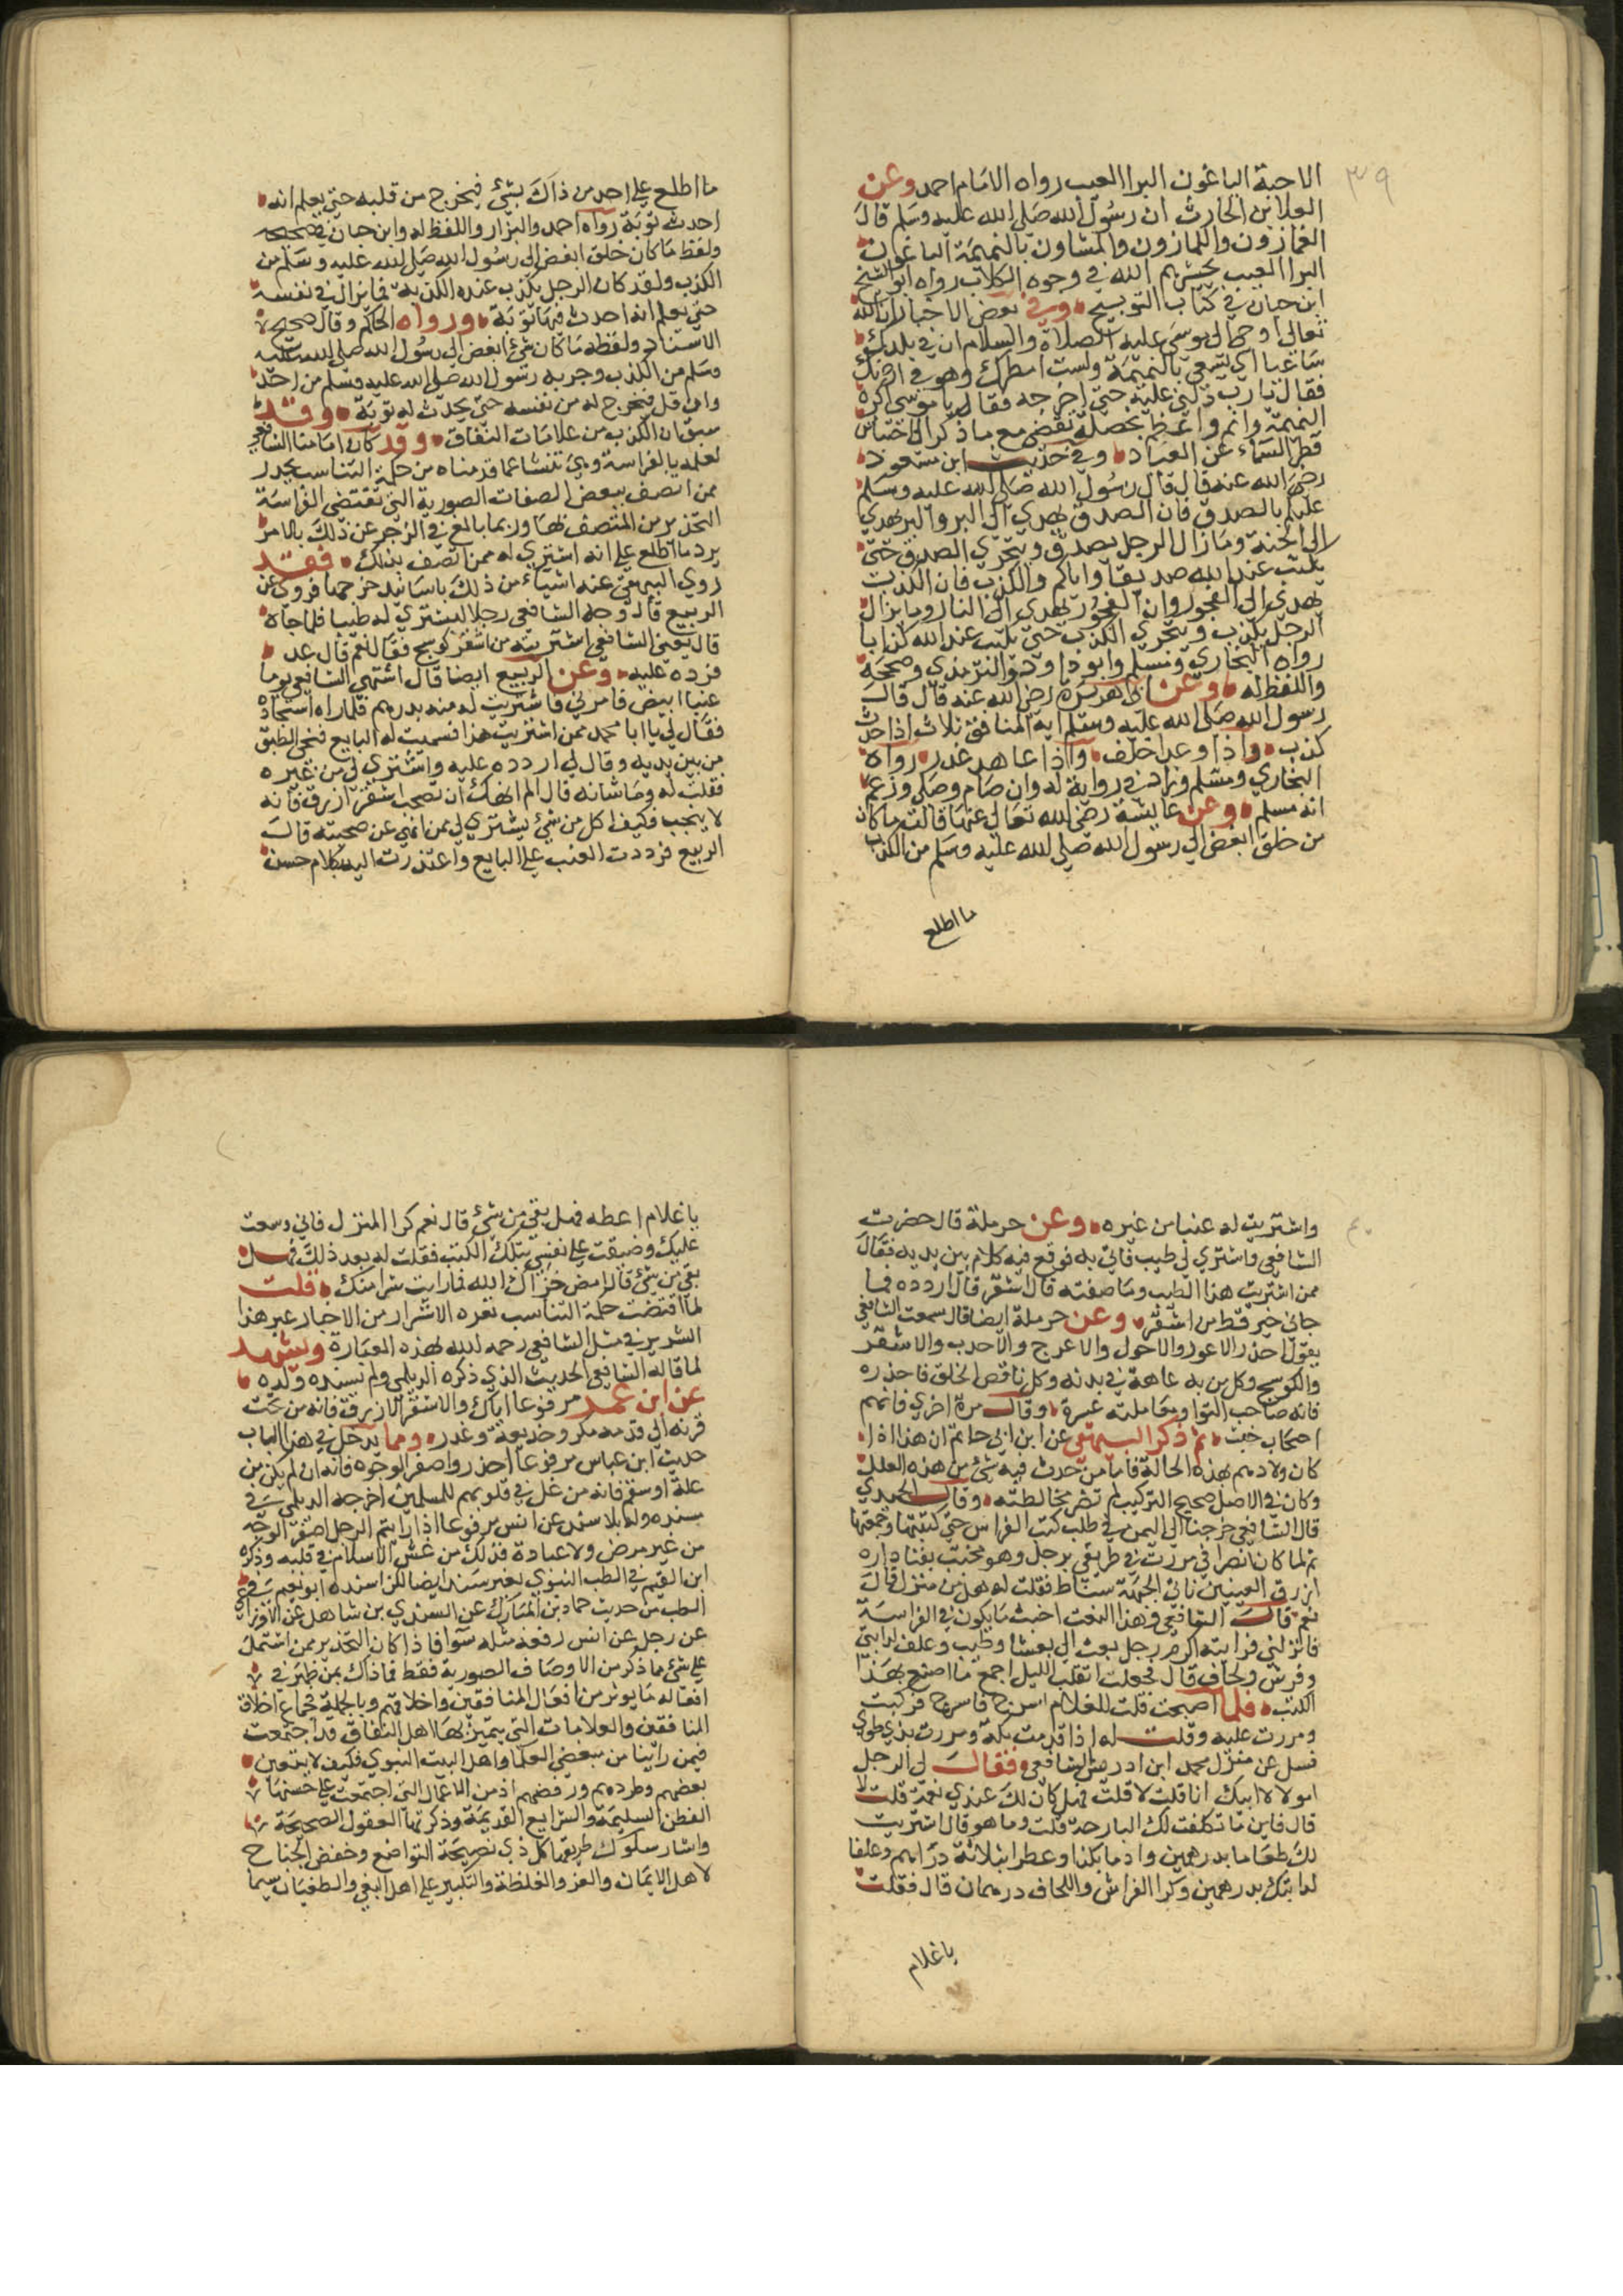 ٣٩
الاحبة الباغون البرا العيب رواه الامام احمد وعن
العلا بن الحارث ان رسول الله صلى الله عليه وسلم قال
الهمازون واللمازون والمشاون بالنميمة الباغون
البرا العيب يحشرهم الله في وجوه الكلاب رواه ابو الشيخ
ابن حبان في كتاب التوبيخ وفي بعض الاخبار ان الله
تعالى اوحى الى موسى عليه الصلاة والسلام ان في بلدك
ساعيا اي يسعى بالنميمة ولست امطرك وهو في ارضك
فقال يا رب دلني عليه حتى اخرجه فقال يا موسى اكره
النميمة وانم واعظم بخصلة تفضي مع ما ذكر الى احتباس
قطر السماء عن العباد وفي حديث ابن مسعود
رضي الله عنه قال قال رسول الله صلى الله عليه وسلم
عليكم بالصدق فان الصدق يهدي الى البر والبر يهدي
الى الجنة وما زال الرجل يصدق ويتحري الصدق حتى
يكتب عند الله صديقا واياكم والكذب فان الكذب
يهدي الى الفجور وان الفجور يهدي الى النار وما يزال
الرجل يكذب ويتحري الكذب حتى يكتب عند الله كذابا
رواه البخاري ومسلم وابو داود والترمذي وصححه
واللفظ له وعن ابي هريرة رضي الله عنه قال قال
رسول الله صلى الله عليه وسلم اية المنافق ثلاث اذا حدث
كذب واذا وعد اخلف واذا عاهد غدر رواه
البخاري ومسلم وزاد في رواية له وان صام وصلى وزعم
انه مسلم وعن عايشة رضي الله تعالى عنها قالت ما كان
من خلق ابغض الى رسول الله صلى الله عليه وسلم من الكذب
ما اطلع
ما اطلع على احد من ذاك بشئ فيخرج من قلبه حتى يعلم انه
احدث توبة رواه احمد والبزار واللفظ له وابن حبان في صحيحه
ولفظ ما كان خلق ابغض الى رسول الله صلى الله عليه وسلم من
الكذب ولقد كان الرجل يكذب عنده الكذبة فما يزال في نفسه
حتى يعلم انه احدث فيها توبة ورواه الحاكم وقال صحيح
الاسناد ولفظه ما كان شئ ابغض الى رسول الله صلى الله عليه
وسلم من الكذب وجربه رسول الله صلى الله عليه وسلم من احد
وان قل فيخرج له من نفسه حتى يحدث له توبة وقد
سبق ان الكذب من علامات النفاق وقد كان امامنا الشافعي
لعلمه بالفراسة وهي تنشا عما قدمناه من حكمة التناسب يحذر
ممن اتصف ببعض الصفات الصورية التي تقتضي الفراسة
التحذير من المتصف بها وربما بالغ في الزجر عن ذلك بالامر
برد ما اطلع على انه اشتري له ممن اتصف بذلك فقد
روي البيهقي عنه اشياء من ذلك باسانيد خرجها فروي عن
الربيع قال وجه الشافعي رجلا ليشتري له طيبا فلما جاه
قال يعني الشافعي اشتريته من اشقر كوسج فقال نعم قال عد
فرده عليه وعن الربيع ايضا قال اشتهي الشافعي يوما
عنبا ابيض فامرني فاشتريت له منه بدرهم فلما راه استجاده
فقال لي يا ابا محمد ممن اشتريت هذا فسميت له البايع فنحى الطبق
من بين يديه وقال لي اردده عليه واشتري لي من غيره
فقلت له وما شانه قال الم انهك ان تصحب اشقر ازرق فانه
لا ينجب فكيف اكل من شئ يشتري لي ممن انهي عن صحبته قال
الربيع فرددت العنب على البايع واعتذرت اليه بكلام حسن
٤٠
واشتريت له عنبا من غيره وعن حرملة قال حضرت
الشافعي واشتري لي طيب فاتي به فوقع فيه كلام بين يديه فقال
ممن اشتريت هذا الطيب وما صفته قال اشقر قال اردده فما
جاني خير قط من اشقر وعن حرملة ايضا قال سمعت الشافعي
يقول احذر الاعور والاحول والاعرج والاحدب والاشقر
والكوسج وكل من به عاهة في بدنه وكل ناقص الخلق فاحذره
فانه صاحب التوا ومعاملته عسرة وقال مرة اخري فانهم
اصحاب خبث ثم ذكر البيهقي عن ابن ابي حاتم ان هذا اذا
كان ولادهم بهذه الحالة فاما من حدث فيه شئ من هذه العلل
وكان في الاصل صحيح التركيب لم تضر مخالطته وقال الحميدي
قال الشافعي خرجنا الى اليمن في طلب كتب الفراس حتى كتبتها وجمعتها
ثم لما كان انصرافي مررت في طريقي برجل وهو محتب بفنا داره
ازرق العينين ناتئ الجبهة سناط فقلت له هل من منزل قال
نعم قال الشافعي وهذا النعت اخبث ما يكون في الفراسة
فانزلني فرايته اكرم رجل بعث الي بعشا وطيب وعلف لدابتي
وفرش ولحاف قال فجعلت اتقلب الليل اجمع ما اصنع بهذا
الكتب فلما اصبحت قلت للغلام اسرج فاسرج فركبت
ومررت عليه وقلت له اذا قدمت مكة ومررت بذي طوي
فسل عن منزل محمد ابن ادريس الشافعي فقال لي الرجل
امولا لابيك انا قلت لا قلت فهل كان لك عندي نعمة قلت لا
قال فاين ما تكلفت لك البارحة قلت وما هو قال اشتريت
لك طعاما بدرهمين وادما بكذا وعطرا بثلاثة دراهم وعلفا
لدابتك بدرهمين وكرا الفراش واللحاف درهمان قال فقلت
يا غلام
يا غلام اعطه فهل بقي من شئ قال نعم كرا المنزل فاني وسعت
عليك وضيقت على نفسي بتلك الكتب فقلت له بعد ذلك هل
بقي من شئ قال امض خزاك الله فما رايت شرا منك قلت
لما اقتضت حكمة التناسب نفره الاشرار من الاخيار عبر هذا
الشرير في مثل الشافعي رحمه الله بهذه العبارة ويشهد
لما قاله الشافعي الحديث الذي ذكره الديلمي ولم يسنده ولده
عن ابن عمر مرفوعا اياك والاشقر الازرق فانه من تحت
قرنه الى قدمه مكر وخديعة وغدر ومما يدخل في هذا الباب
حديث ابن عباس مرفوعا احذروا صفر الوجوه فانه ان لم يكن من
علة او سقم فانه من غل في قلوبهم للمسلمين اخرجه الديلمي في
مسنده وله بلا سند عن انس مرفوعا اذا رايتم الرجل اصفر الوجه
من غير مرض ولا عبادة فذلك من غش الاسلام في قلبه وذكره
ابن القيم في الطب النبوي بغير سند ايضا لكن اسنده ابو نعيم في
الطب من حديث حماد بن المبارك عن السندي بن شاهك عن الاوزاعي
عن رجل عن انس رفعه مثله سوا فاذا كان التحذير ممن اشتمل
على شئ مما ذكر من الاوصاف الصورية فقط فما ذاك بمن ظهر في
افعاله ما يوثر من افعال المنافقين واخلاقهم وبالجملة فجماع اخلاق
المنافقين والعلامات التي يتميز بها اهل النفاق قد اجتمعت
فيمن راينا من مبغضي العلما واهل البيت النبوي فكيف لا يتعين
بغضهم وطردهم ورفضهم اذ من الاعمال التي اجتمعت على حسنها
الفطن السليمة والشرايع القديمة وذكرتها العقول الصحيحة
واشار سلوك طريقها كل ذي نصيحة التواضع وخفض الجناح
لاهل الايمان والعز والغلظة والتكبير على اهل البغي والطغيان سيما